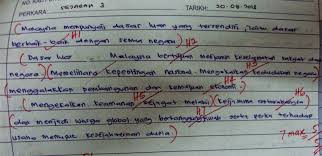 PERKARA: SEJARAH 3 TARIKH: 30-09-2018
(Malaysia mempunyai dasar luar yang tersendiri, iaitu dasar
berbaik-baik dengan semua negara)
H1
H2
(Dasar luar Malaysia bertujuan menjamin keselamatan rakyat dan
negara) (Memelihara kepentingan nasional
H3
H4
menggalakkan pembangunan dan kemajuan ekonomi)
H5
H6
(Mengekalkan keamanan sejagat melalui) (kerjasama antarabangsa)
(dan menjadi warga global yang bertanggungjawab serta perlu terhadap
usaha memupuk kesejahteraan dunia)
7 max